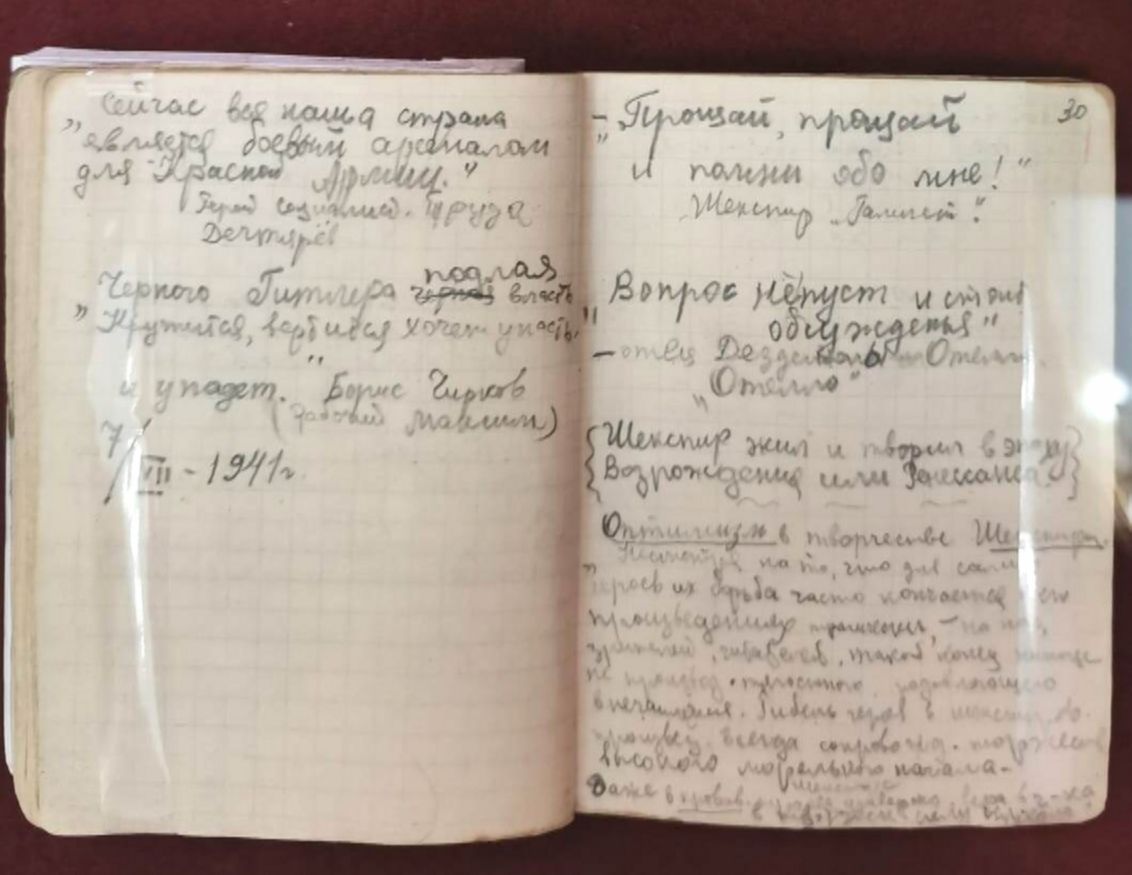 Сейчас вся наша страна
„является боевым арсеналом
для Красной Армии."
Герой социалист. труда
Дегтярёв
подлая
„Черного Гитлера черная власть
Кружится, вертится хочет упасть,"
и упадет." Борис Чирков
(рабочий Максим)
7/VII - 1941г.
30
- „Прощай, прощай
и помни обо мне!"
Шекспир „Гамлет".
„Вопрос не пуст и стоит
обсужденья"
- отец Дездемоны Отелло.
„Отелло"
{Шекспир жил и творил в эпоху
Возрождения или Ренессанса}
Оптимизм в творчестве Шекспира.
„Несмотря на то, что для самих
героев их борьба часто кончается в его
произведениях трагически, - но на
зрителей, читателей, такой конец
не производ. тягостного, подавляющего
впечатления. Гибель героя в шекспир.
произвед. всегда сопровожд. торжеством
высокого морального начала.
Даже в кровав. вера в ч-ка
в